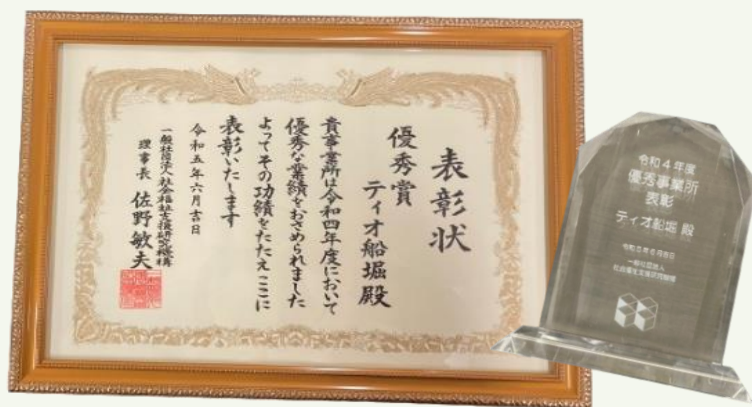 表彰状
優秀賞
ティオ船堀殿
貴事業所は令和四年度において
優秀な業績をおさめられました
よってその功績をたたえここに
表彰いたします
令和五年六月吉日
一般社団法人社会福祉支援研究機構
理事長 佐野敏夫
令和4年度
優秀事業所
表彰
ティオ船堀 殿
令和5年6月吉日
一般社団法人
社会福祉支援研究機構